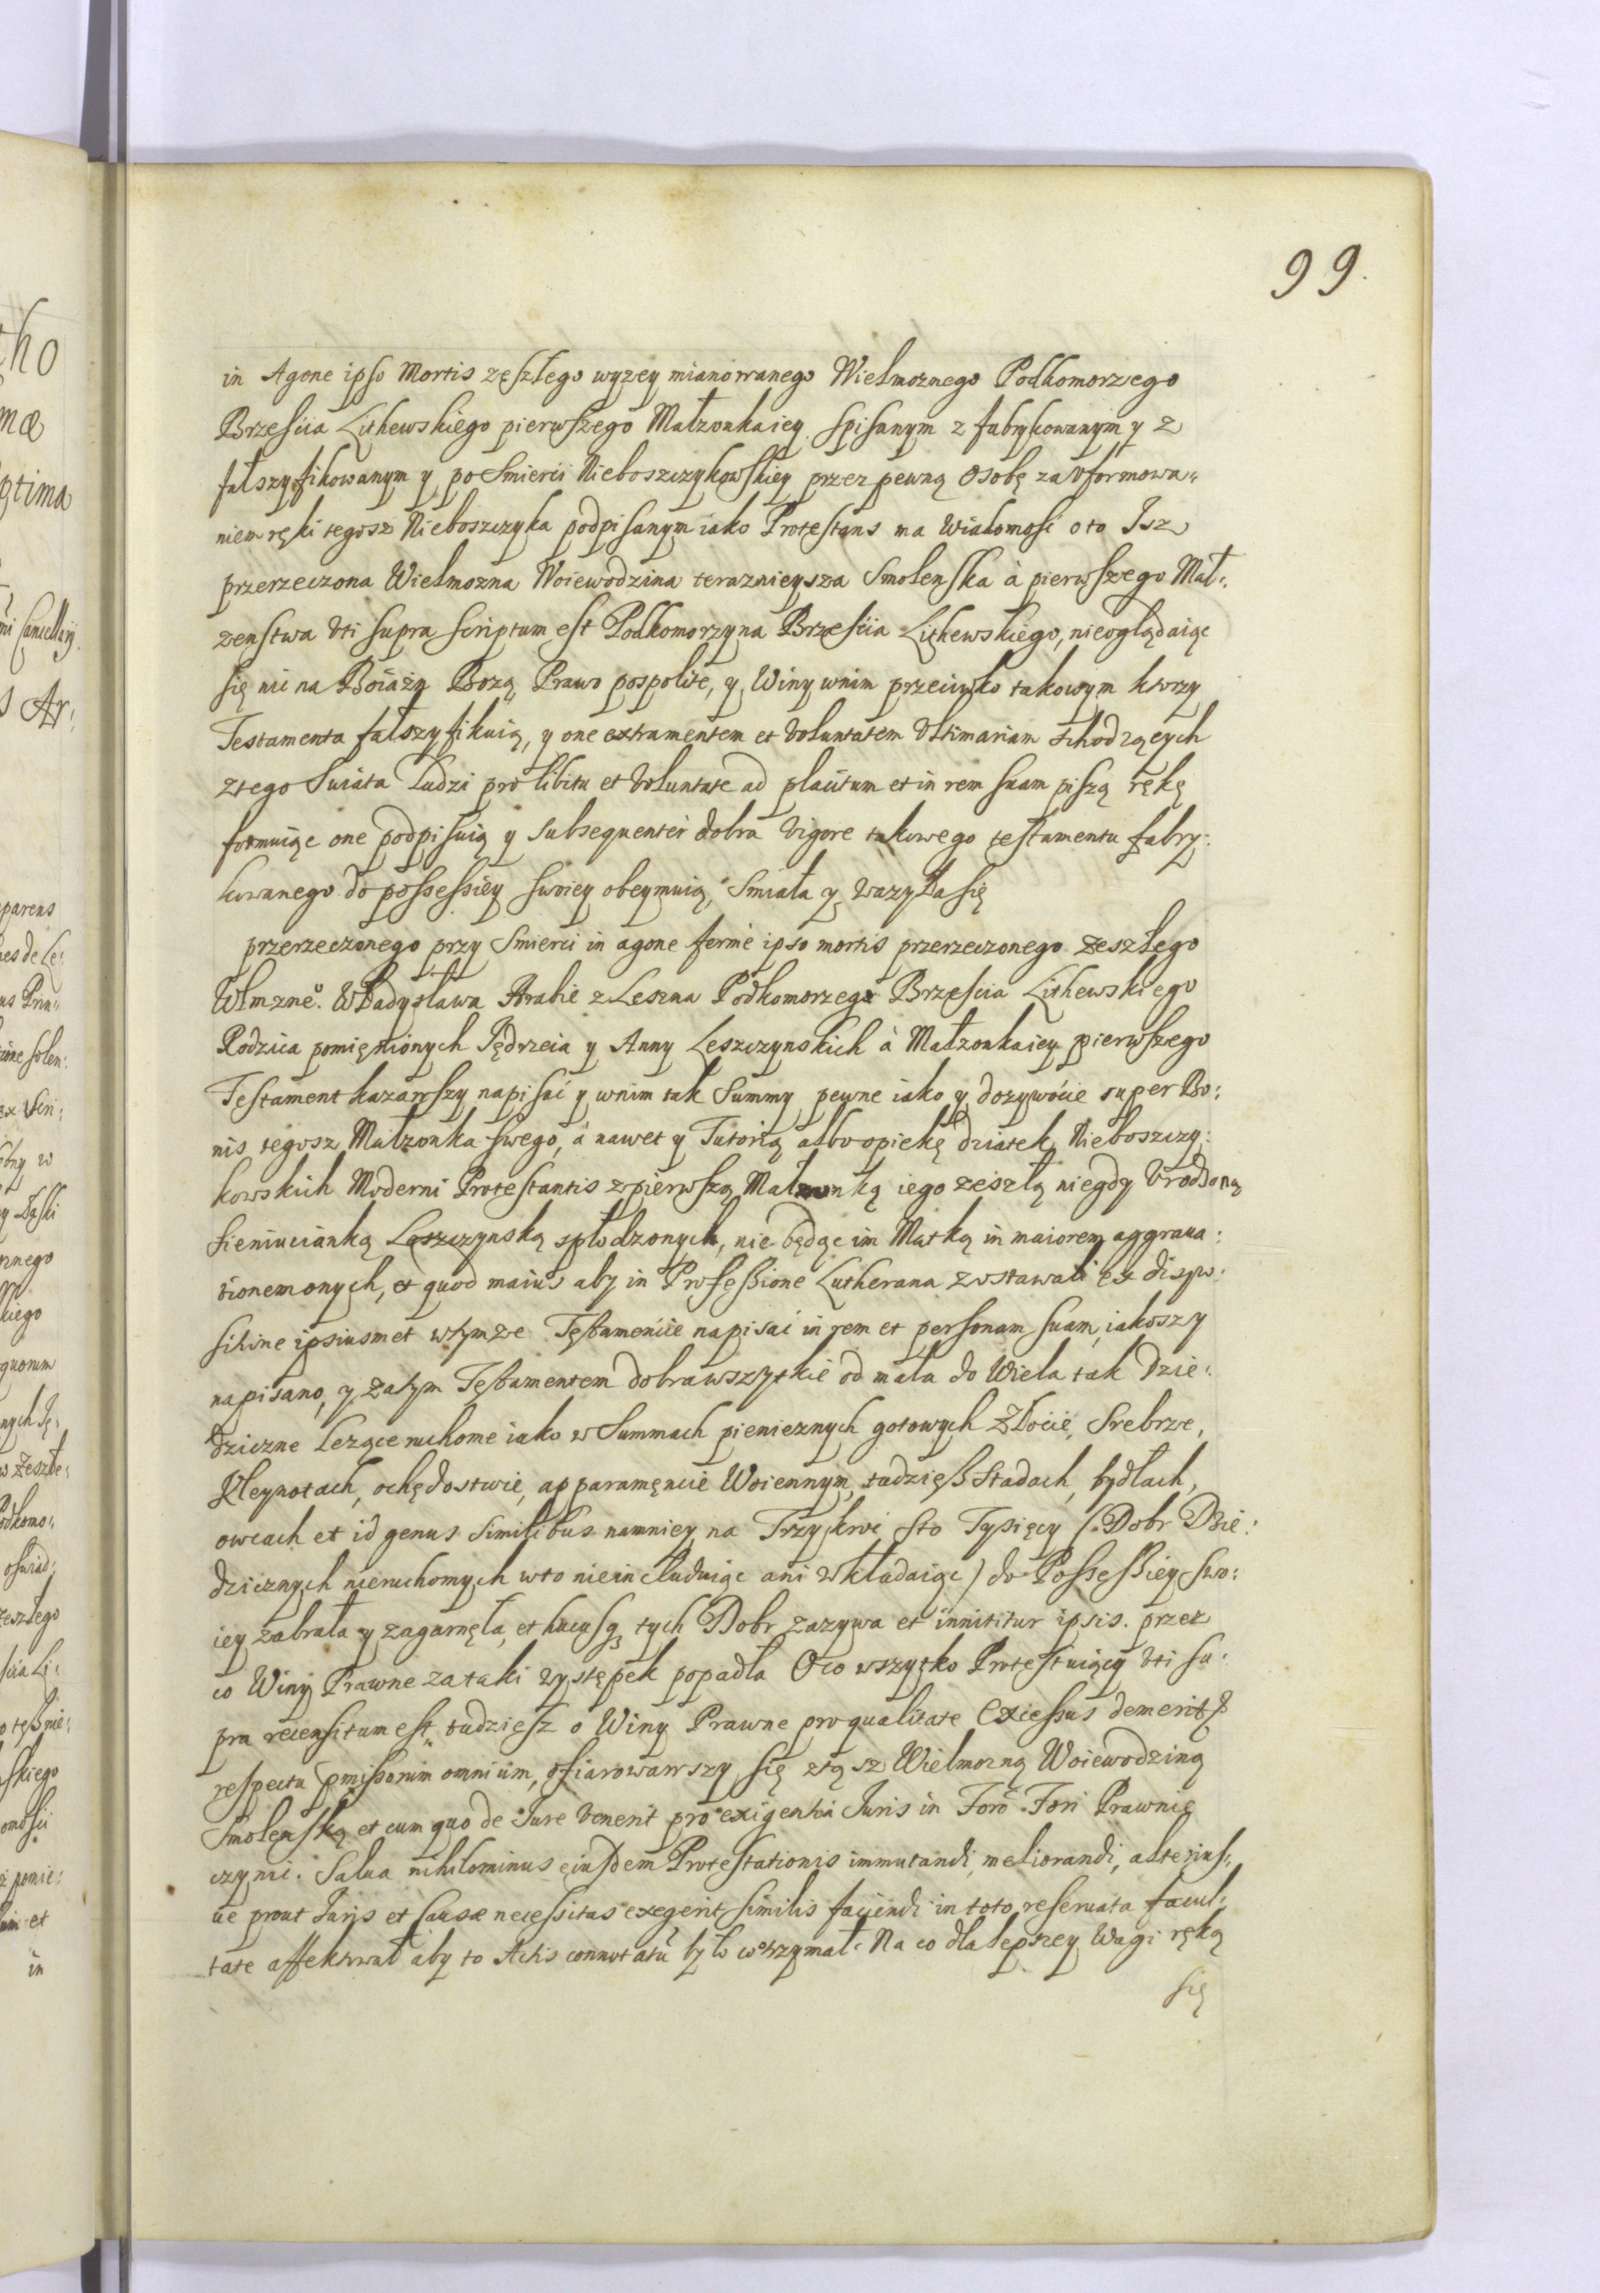 99.
in Agone ipso Mortis zeszłego wyzey mianowanego Wielmoznego Podkomorzego
Brzescia Lithewskiego pierwszego Małzonka iey spisanym z fabrykowanym y z
fałszyfikowanym y po Smierci Nieboszczykowskiey przez pewną osobę za Vformowa„
niem ręki tegosz Nieboszczyka podpisanym iako Protestans ma Wiadomość o to Isz
przerzeczona Wielmozna Woiewodzina teraznieysza Smolenska à pierwszego Mał:
zenstwa Vti supra scriptum est Podkomorzyna Brzescia Lithewskiego, nieoglądaiąc
się nic na Boiaźń Bozą Prawo pospolite, y Winy wnim przeciwko takowym ktorzy
Testamenta fałszyfikuią, y one extra mentem et Voluntatem Vltimariam schodzących
ztego Swiata Ludzi pro libitu et Voluntate ad placitum et in rem suam piszą rękę
formuiąc one podpisuią y subsequenter dobra Vigore takowego testamentu fabry:
kowanego do possessiey swoiey obeymuią, Smiała y Wazyła się
przerzeczonego przy Smierci in agone ferme ipso mortis przerzeczonego zeszłego
Wlmzneo. Władysława Hrabie z Leszna Podkomorzego Brzescia Lithewskiego
Rodzica pomięnionych Jędrzeia y Anny Leszczynskich à Małzonka iey pierwszego
Testament kazawszy napisać y wnim tak Summy pewne iako y dozywocie super Bo:
nis tegosz Małzonka swego, á nawet y Tutorią albo opiekę dziatek Nieboszczy:
kowskich Moderni Protestantis zpierwszą Małzonką iego zeszłą niegdy Vrodzoną
Sieniucianką Leszczynską spłodzonych, nie będąc im Matką in maiorem aggraua:
tionem onych, et quod maius aby in Professione Lutherana zostawali ex dispo:
sitione ipsiusmet wtymze Testamencie napisać in rem et personam suam, iakoszy
napisano, y zatym Testamentem dobra wszytkie od mała do Wiela tak dzie:
dziczne Lezące ruchome iako w Summach pieniężnych gotowych Złocie, Srebrze,
Kleynotach, ochędostwie, apparamencie Woiennym, tudziesz Stadach, bydłach,
owcach et id genus similibus namniey na Trzykroć sto Tysięcy (Dobr Dzie:
dzicznych nieruchomych wto nieincluduiąc ani wkładaiąc) do Possessiey swo:
iey zabrała y zagarnęła, et hucusq tych Dobr zazywa et innititur ipsis. przez
co Winy Prawne za taki występek popadła O co wszytko Protestuiący Vti su:
pra recensitum est, tudziesz o Winy Prawne pro qualitate Excessus demeritas
respectu pmissorum omnium, ofiarowawszy się ztąsz Wielmozną Woiewodziną
Smolenską et cum quo de Iure Venerit pro exigentia Iuris in Foro Fori Prawnie
czynić. Salua nihilominus eiusdem Protestationis immutandi, meliorandi, alterius,
ue prout Iuris et Causae necessitas exegerit similis faciendi in toto reseruata facul:
tate affektował aby to Actis connotatum było co otrzymał. Na co dla lepszey Wagi ręką
się